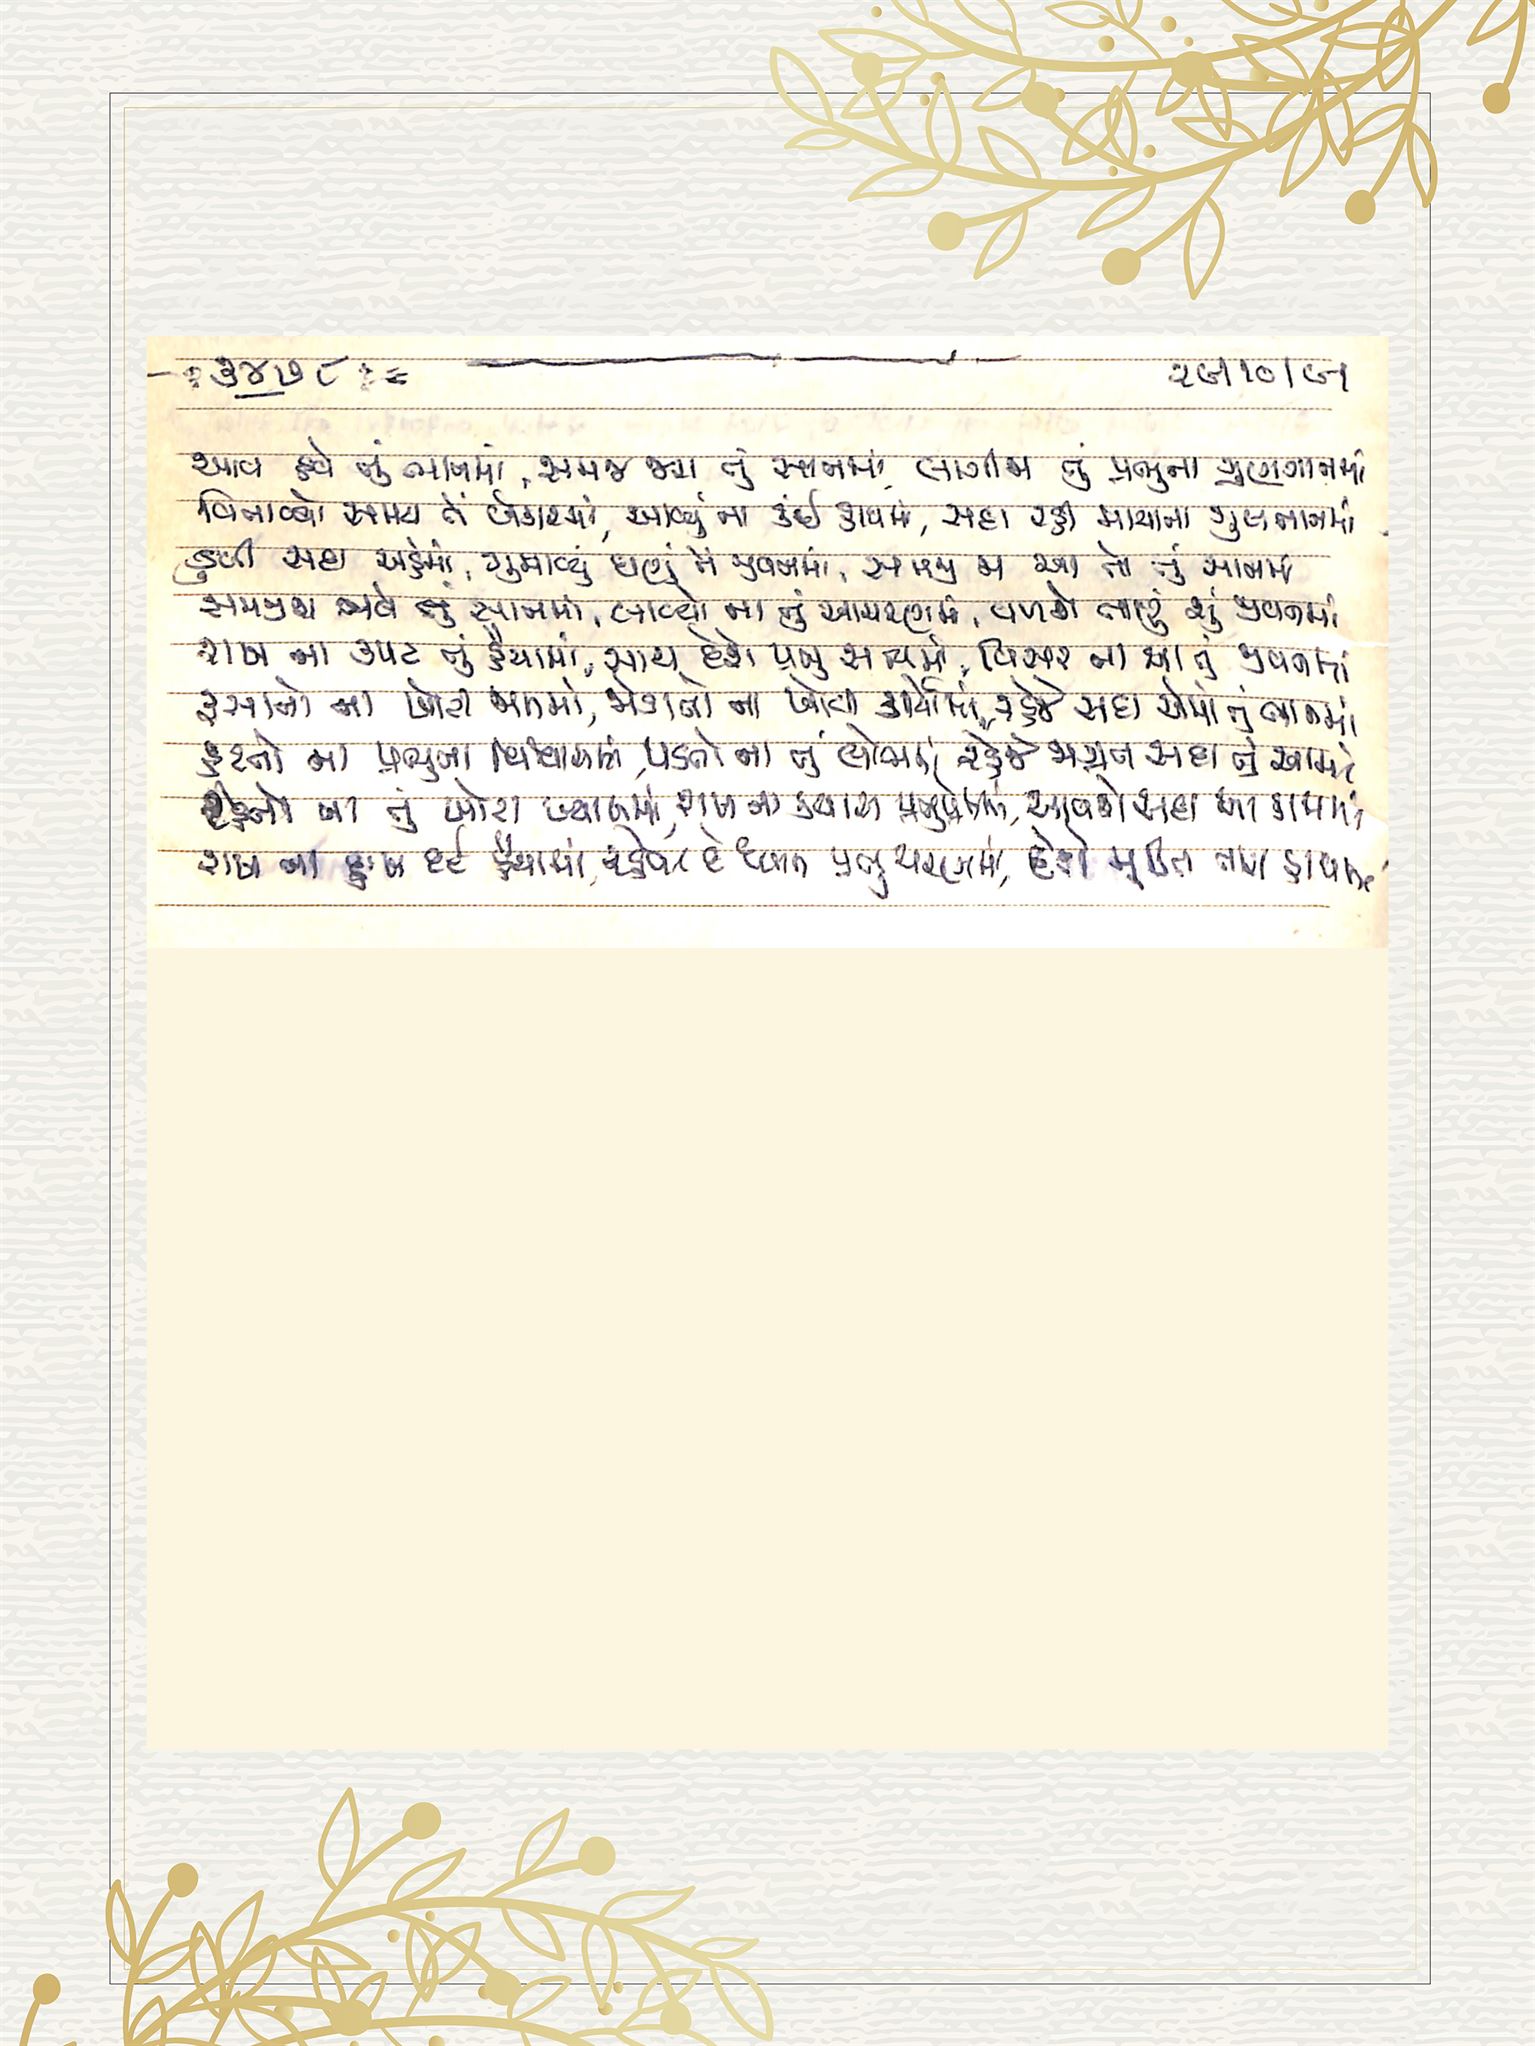 ૩૪૭૮ ૨૯|૧૦|૯૧
આવ હવે તું ભાનમાં, સમજ જરા તું સાનમાં, લાગીજા તું પ્રભુના ગુણગાનમાં
વિતાવ્યો સમય તેં બેકારમાં, આવ્યું ના કંઈ હાથમાં, સદા રહી માયાના ગુલતાનમાં
ડુબી સદા અહંમાં, ગુમાવ્યું ઘણું તેં જીવનમાં, સમજી જા આ તો તું સાનમાં
સમજીશ જો તું સાનમાં, લાવ્યો ના તું આચરણમાં, વળશે તારું શું જીવનમાં
રાખ ના કપટ તું હૈયામાં, સાથ દેશે પ્રભુ સત્યમાં, વિસર ના આ તું જીવનમાં
ફસાતો ના ખોટા માનમાં, જોડાતો ના ખોટા કાર્યોમાં, રહેજે સદા એમાં તું ભાનમાં
હટતો ના પ્રભુના વિશ્વાસમાં, પડતો ના તું લોભમાં, રહેજે મગ્ન સદા તું આમાં
રહેતો ના તું ખોટા ખ્યાલમાં, રાખ ના કચાશ પ્રભુપ્રેમમાં, આવશે સદા આ કામમાં
રાખ ના દુઃખ દર્દ હૈયામાં, રહેવા દે ધ્યાન પ્રભુ ચરણમાં, દેશે મુક્તિ તારા હાથમાં